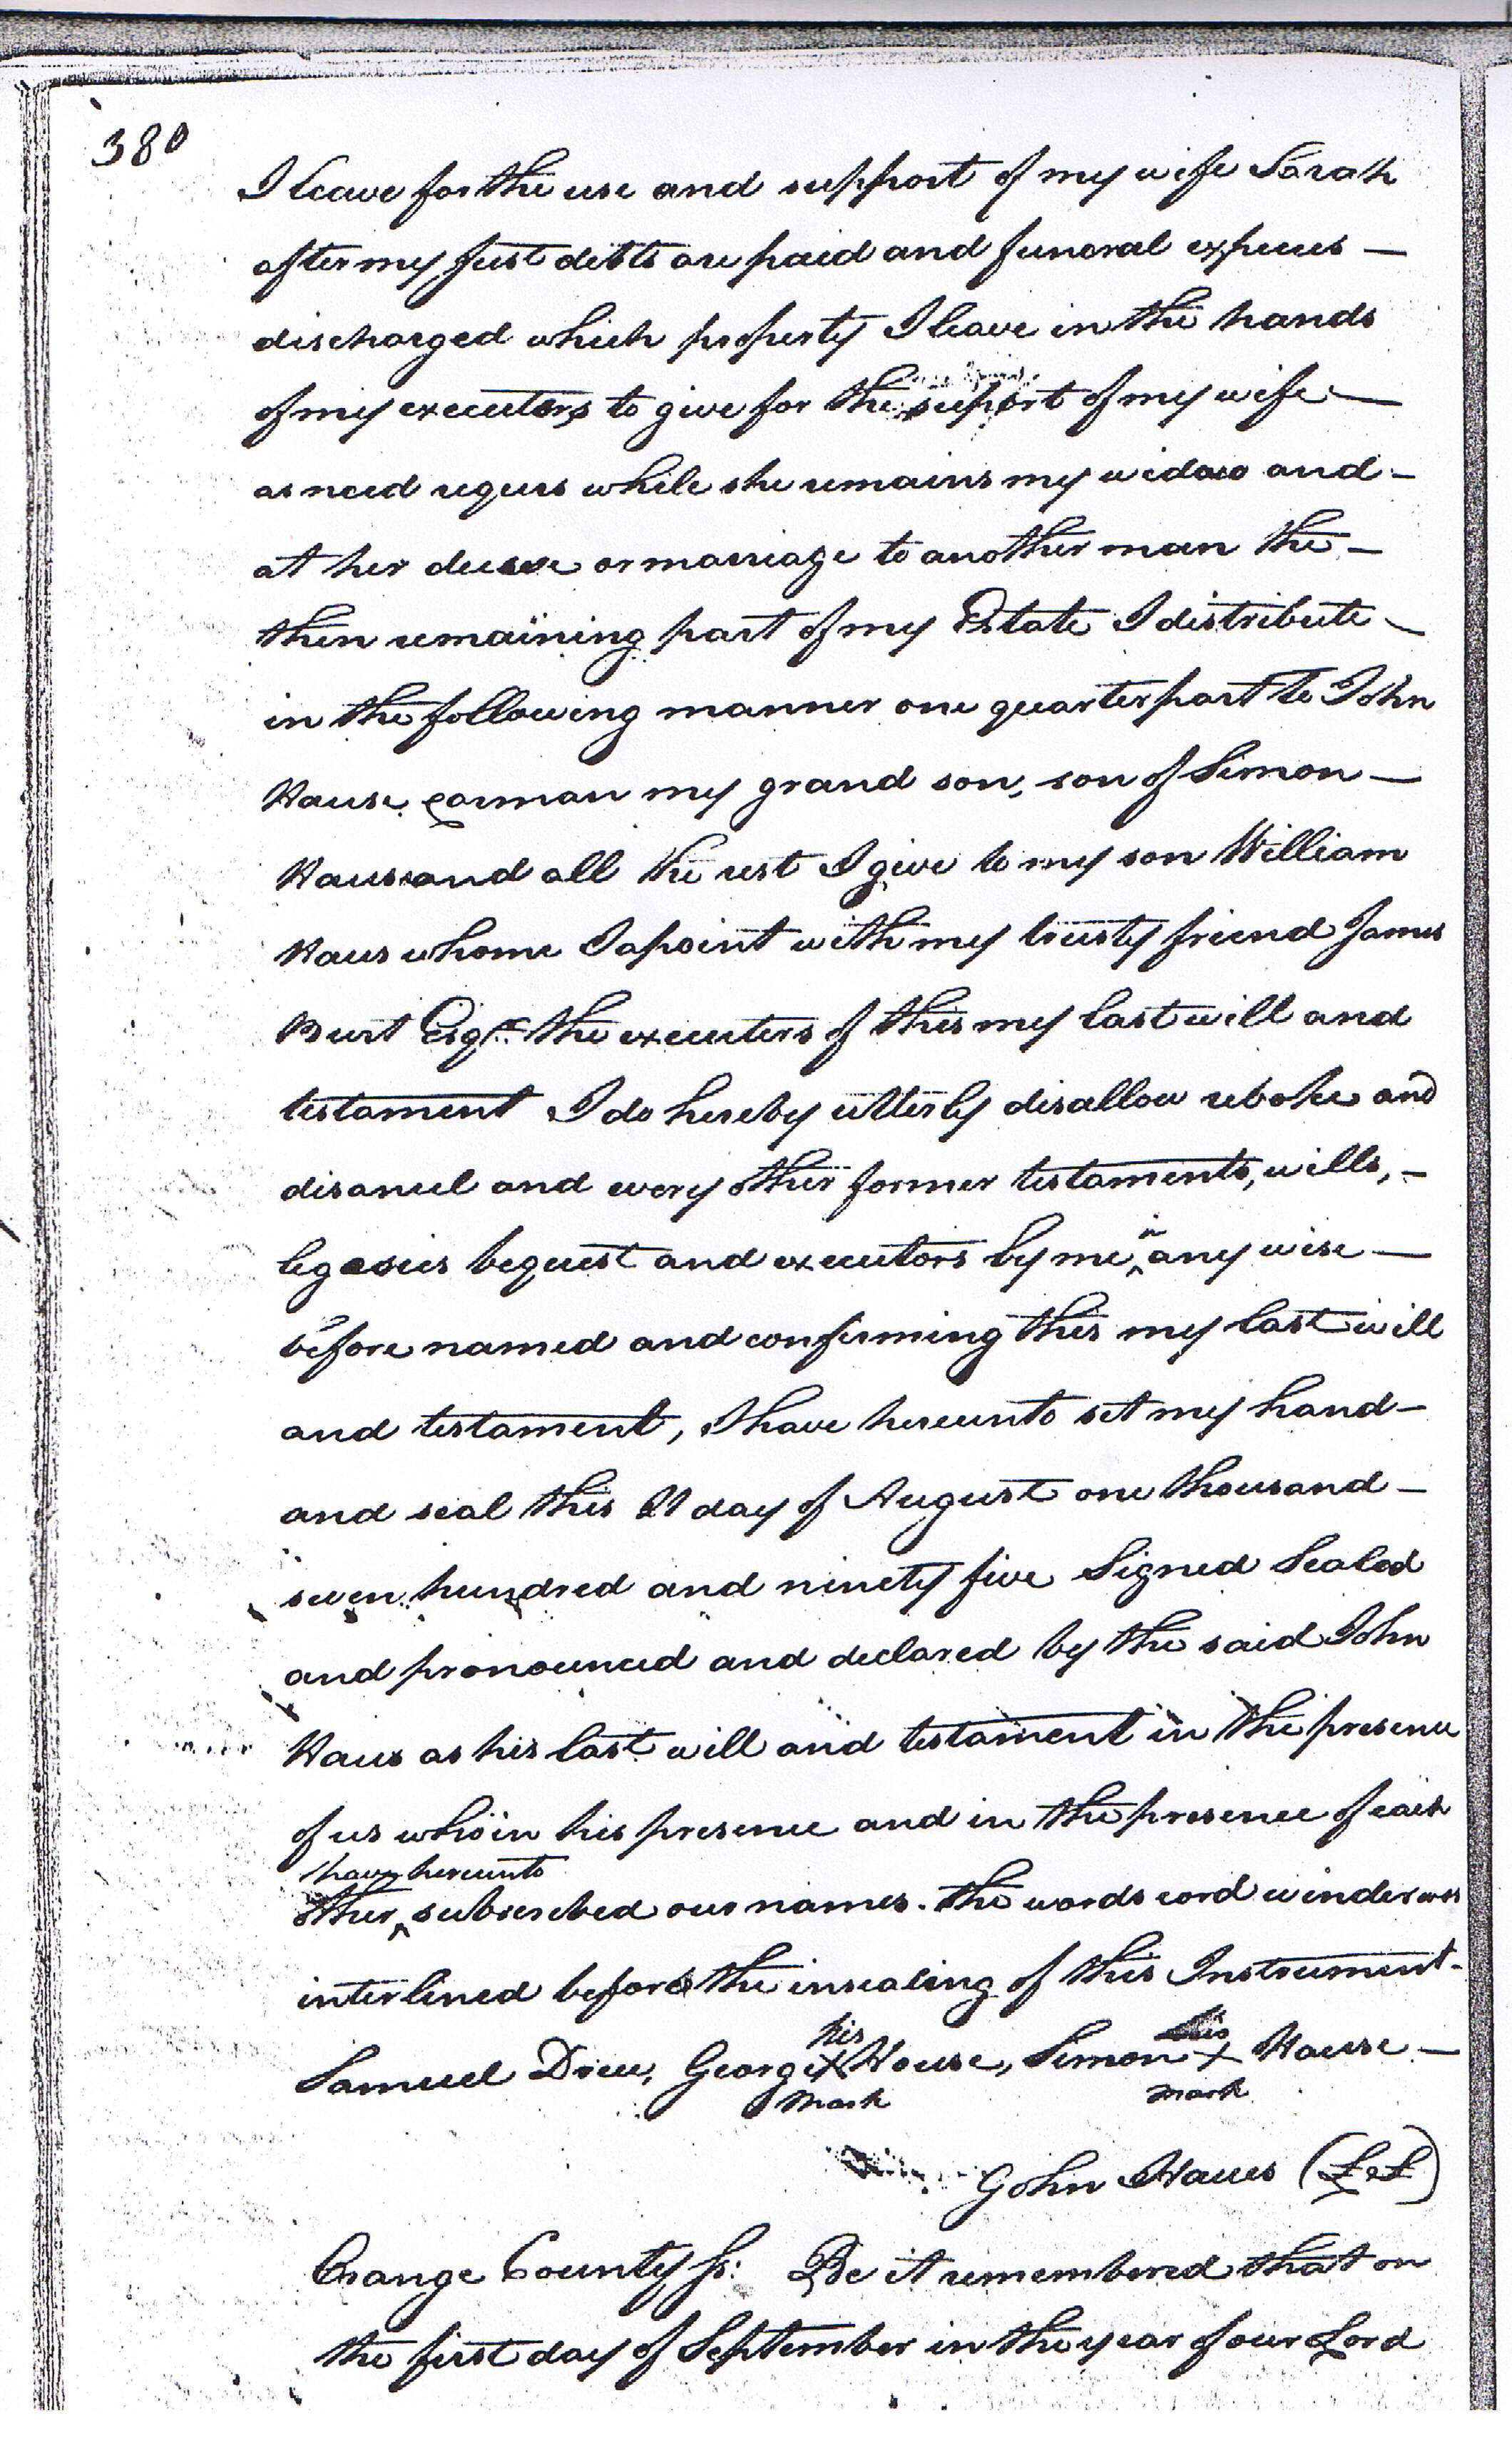 380
I leave for the use and support of my wife Sarah
after my just debts are paid and funeral expences —
discharged which property I leave in the hands
of my executors to give for the support of my wife —
as need requirs while she remains my widow and -
at her decease or marriage to another man the -
then remaining part of my Estate I distribute -
in the following manner one quarter part to John
Hause carman my grand son, son of Simon —
Haus and all the rest I give to my son William
Haus whome I apoint with my trusty friend James
Burt Esqr. the executers of this my last will and
testament I do hereby utterly disallow reboke and
disanul and every other former testaments, wills, -
legasies bequest and executors by me in any wise —
before named and confirming this my last will
and testament, I have hereunto set my hand -
and seal this 21 day of August one thousand -
seven hundred and ninety five Signed Sealed
and pronounced and declared by the said John
Haus as his last will and testament in the presence
of us who in his presence and in the presence of each
have hereunto
other ‸ subscribed our names. the words cord winder was
interlined before the insealing of this Instrument -
Samuel Drew, George his X mark House, Simon his X mark Hause —
John Haues (L S)
Orange County Ss: Be it remembered that on
the first day of September in the year of our Lord